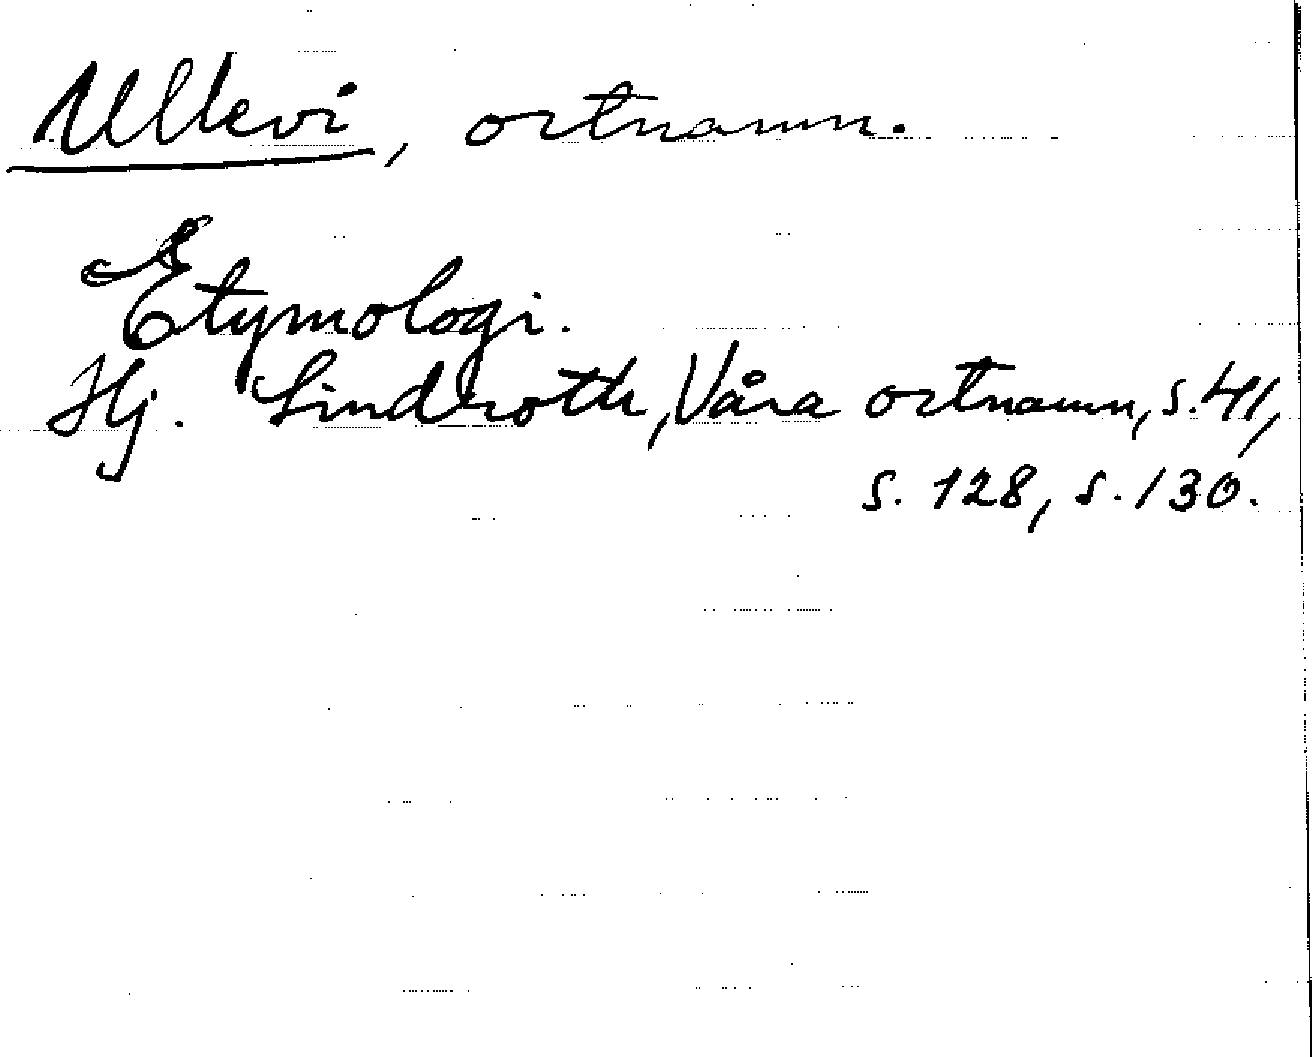 Ullevi, ortnamn.
Etymologi.
Hj. Lindroth, Våra ortnamn, s. 41,
s. 128, s. 130.